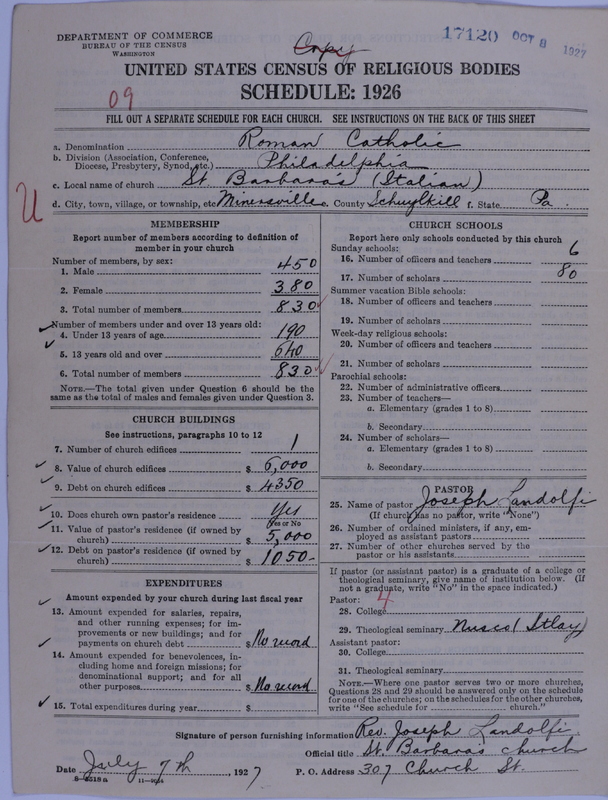 DEPARTMENT OF COMMERCE
BUREAU OF THE CENSUS
WASHINGTON
Copy
17120 OCT 8 1927
UNITED STATES CENSUS OF RELIGIOUS BODIES
SCHEDULE: 1926
09
FILL OUT A SEPARATE SCHEDULE FOR EACH CHURCH. SEE INSTRUCTIONS ON THE BACK OF THIS SHEET
a. Denomination Roman Catholic
b. Division (Association, Conference, Diocese, Presbytery, Synod, etc.) Philadelphia
c. Local name of church St Barbara's (Italian)
U
d. City, town, village, or township, etc Minersville e. County Schuylkill f. State Pa.
MEMBERSHIP
Report number of members according to definition of
member in your church
Number of members, by sex:
1. Male 450
2. Female 380
3. Total number of members 830
Number of members under and over 13 years old:
4. Under 13 years of age 190
5. 13 years old and over 640
6. Total number of members 830
NOTE.—The total given under Question 6 should be
same as the total of males and females given under Question 3.
CHURCH BUILDINGS
See instructions, paragraphs 10 to 12
7. Number of church edifices 1
8. Value of church edifices $ 6,000
9. Debt on church edifices $ 4350
10. Does church own pastor's residence Yes
Yes or No
11. Value of pastor's residence (if owned by
church) $ 5,000
12. Debt on pastor's residence (if owned by
church) $ 1050-
EXPENDITURES
Amount expended by your church during last fiscal year
13. Amount expended for salaries, repairs,
and other running expenses; for im-
provements or new buildings; and for
payments on church debt $ No record
14. Amount expended for benevolences, in-
cluding home and foreign missions; for
denominational support; and for all
other purposes $ No record
15. Total expenditures during year $
CHURCH SCHOOLS
Report here only schools conducted by this church
Sunday schools:
16. Number of officers and teachers 6
17. Number of scholars 80
Summer vacation Bible schools:
18. Number of officers and teachers
19. Number of scholars
Week-day religious schools:
20. Number of officers and teachers
21. Number of scholars
Parochial schools:
22. Number of administrative officers
23. Number of teachers—
a. Elementary (grades 1 to 8)
b. Secondary
24. Number of scholars—
a. Elementary (grades 1 to 8)
b. Secondary
PASTOR
25. Name of pastor Joseph Landolfi
(If church has no pastor, write "None")
26. Number of ordained ministers, if any, em-
ployed as assistant pastors
27. Number of other churches served by the
pastor or his assistants
If pastor (or assistant pastor) is a graduate of a college or
theological seminary, give name of institution below. (If
not a graduate, write "No" in the space indicated.)
Pastor: 4
28. College
29. Theological seminary Nusco (Itlay)
Assistant pastor:
30. College
31. Theological seminary
NOTE.—Where one pastor serves two or more churches,
Questions 28 and 29 should be answered only on the schedule
for one of the churches; on the schedules for the other churches,
write "See schedule for church."
Signature of person furnishing information Rev. Joseph Landolfi
Official title St. Barbara's church
Date July 7th, 1927 P. O. Address 307 Church St.
8-2518a 11-9064